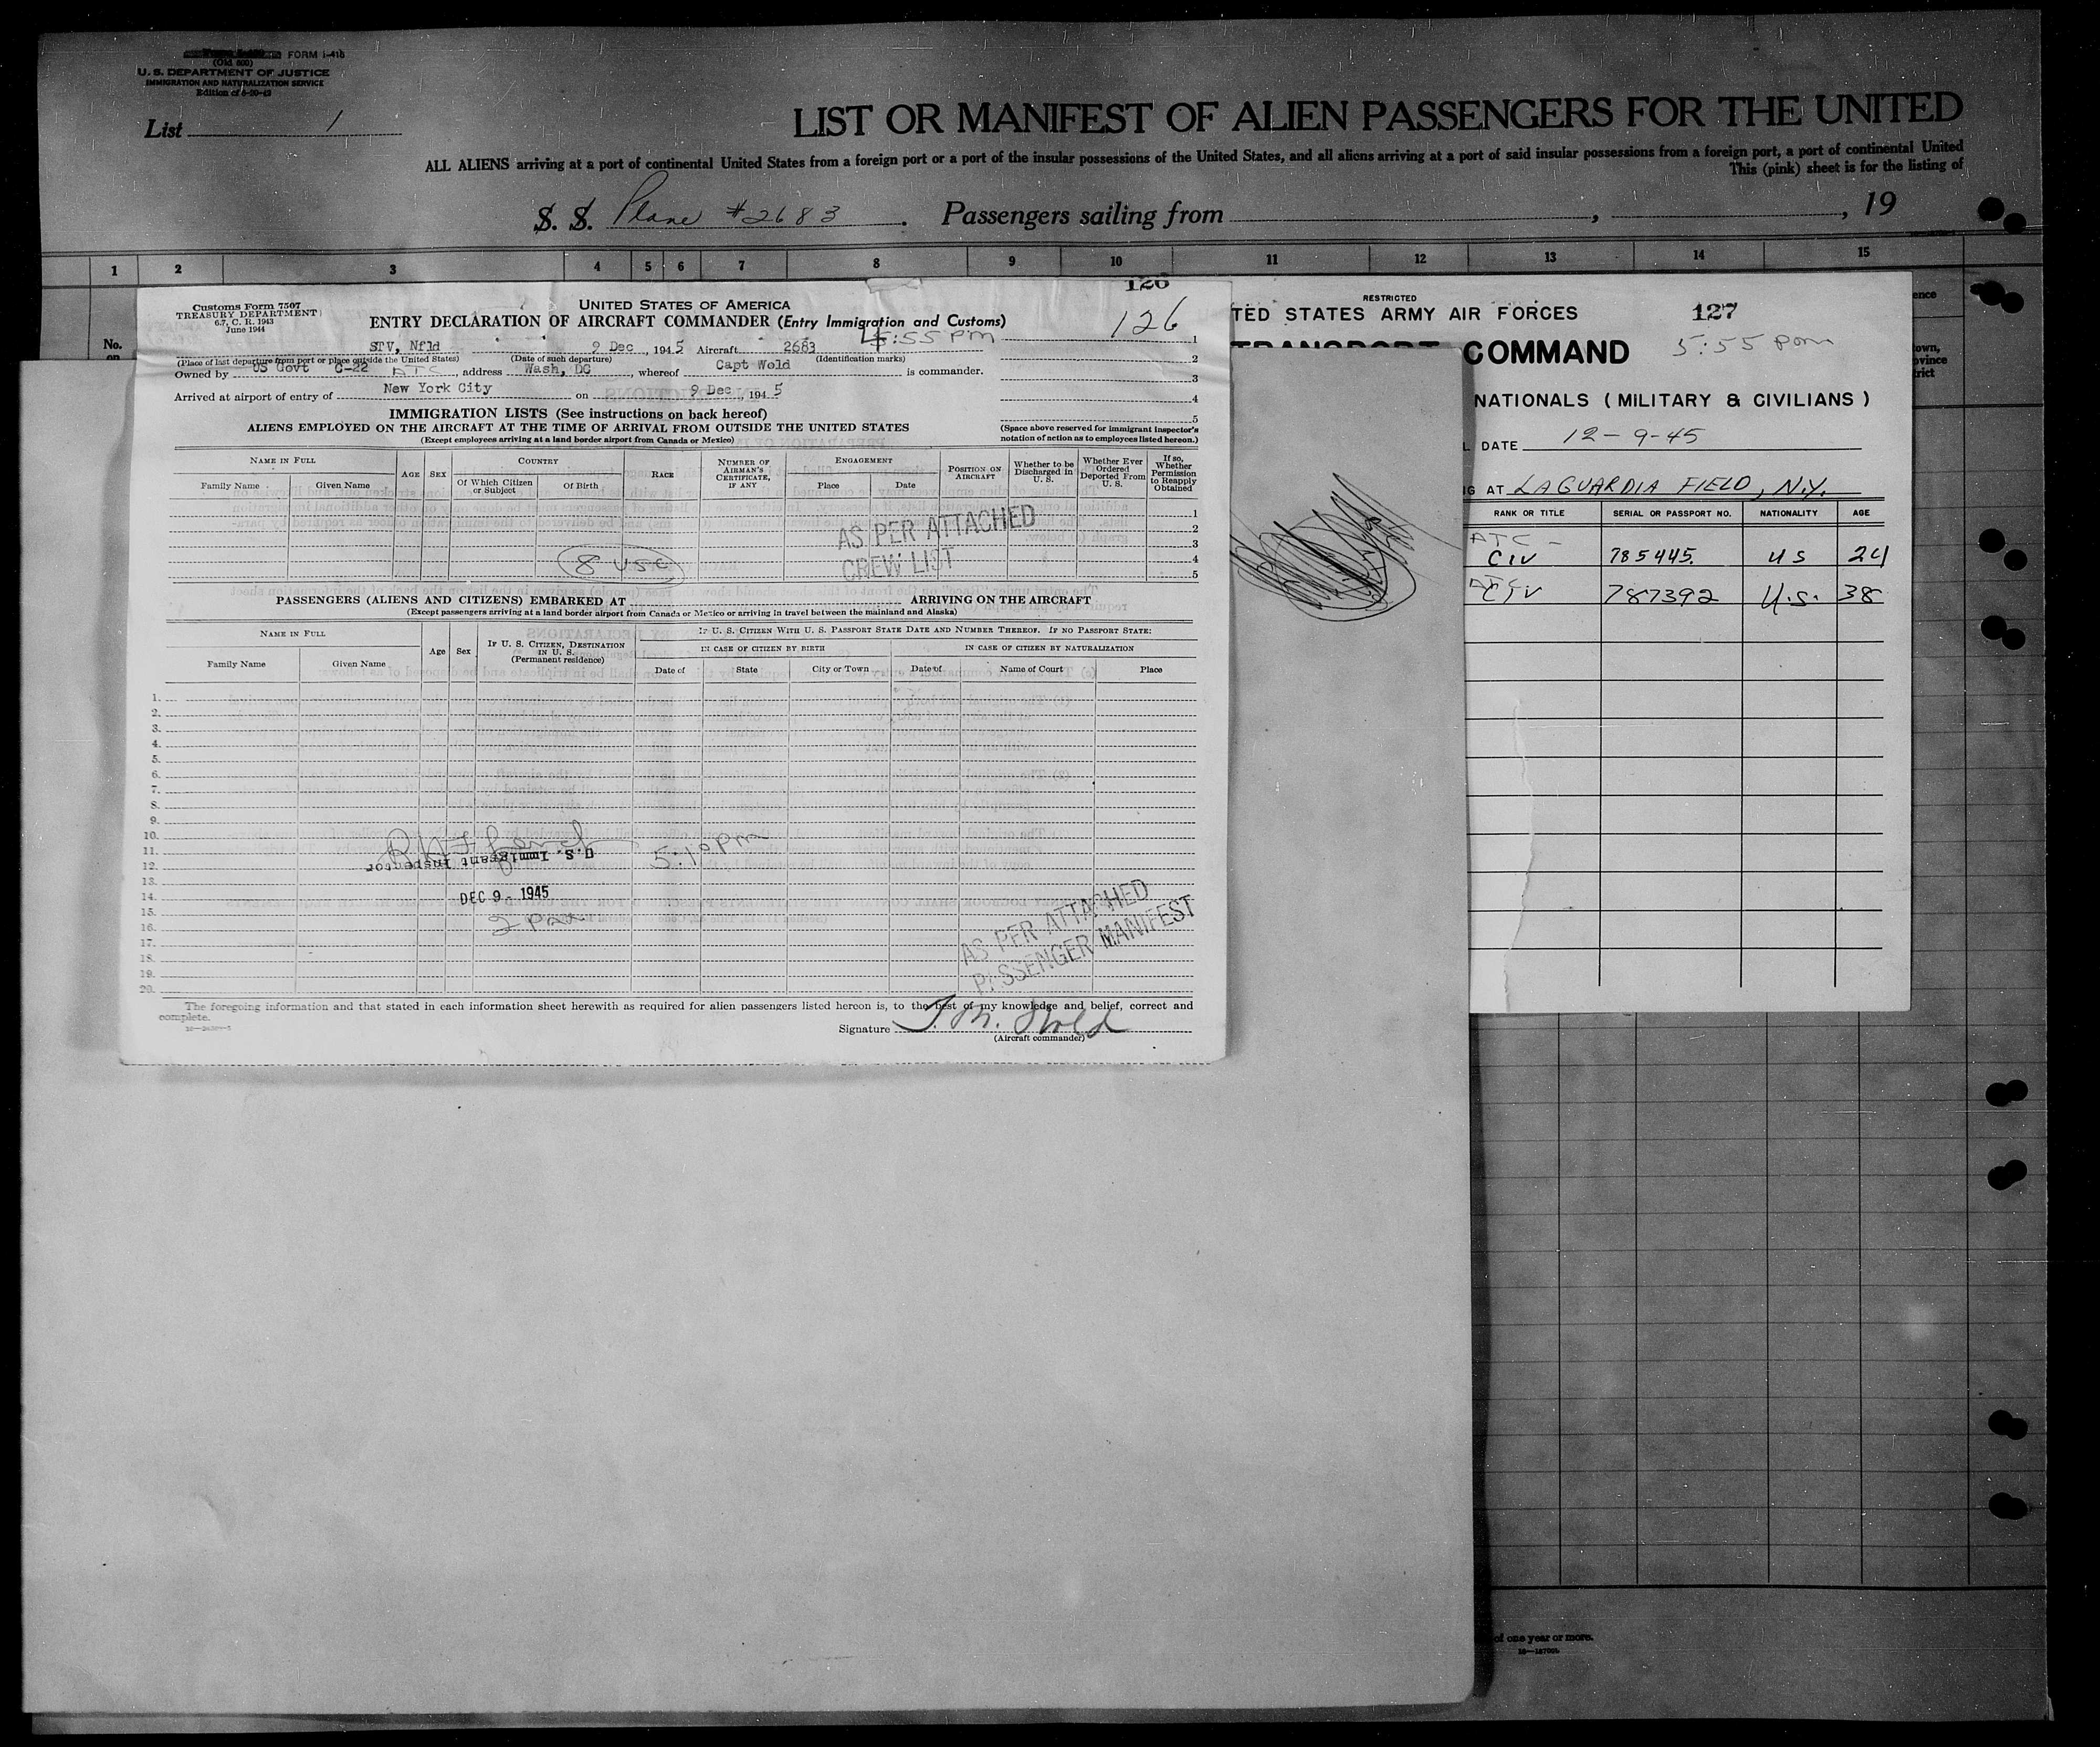 FORM I-418
(Old 600)
U. S. DEPARTMENT OF JUSTICE
IMMIGRATION AND NATURALIZATION SERVICE
List 1
LIST OR MANIFEST OF ALIEN PASSENGERS FOR THE UNITED
ALL ALIENS arriving at a port of continental United States from a foreign port or a port of the insular possessions of the United States, and all aliens arriving at a port of said insular possessions from a foreign port, a port of continental United
This (pink) sheet is for the listing of
S. S. Plane #2683. Passengers sailing from , , 19
1 2 3 4 5 6 7 8 9 10 11 12 13 14 15
No.
on
Customs Form 7507
TREASURY DEPARTMENT
6.7, C. R. 1943
June 1944
UNITED STATES OF AMERICA
126
ENTRY DECLARATION OF AIRCRAFT COMMANDER (Entry Immigration and Customs)
126
5:55 pm
STV, Nfld 9 Dec, 1945 Aircraft 2683
(Place of last departure from port or place outside the United States) (Date of such departure) (Identification marks)
Owned by US Govt C-22 ATC, address Wash, DC, whereof Capt Wold is commander.
Arrived at airport of entry of New York City on 9 Dec, 1945
1
2
3
4
5
IMMIGRATION LISTS (See instructions on back hereof)
ALIENS EMPLOYED ON THE AIRCRAFT AT THE TIME OF ARRIVAL FROM OUTSIDE THE UNITED STATES
(Except employees arriving at a land border airport from Canada or Mexico)
(Space above reserved for immigrant inspector's
notation of action as to employees listed hereon.)
NAME IN FULL
Family Name Given Name
AGE SEX
COUNTRY
Of Which Citizen or Subject Of Birth
RACE
NUMBER OF AIRMAN'S CERTIFICATE, IF ANY
ENGAGEMENT
Place Date
POSITION ON AIRCRAFT
Whether to be Discharged in U. S.
Whether Ever Ordered Deported From U. S.
If so, Whether Permission to Reapply Obtained
1
2
3
4
5
AS PER ATTACHED
CREW LIST
8 USC
PASSENGERS (ALIENS AND CITIZENS) EMBARKED AT ARRIVING ON THE AIRCRAFT
(Except passengers arriving at a land border airport from Canada or Mexico or arriving in travel between the mainland and Alaska)
NAME IN FULL
Family Name Given Name
Age Sex
IF U. S. CITIZEN, DESTINATION IN U. S.
(Permanent residence)
IF U. S. CITIZEN WITH U. S. PASSPORT STATE DATE AND NUMBER THEREOF. IF NO PASSPORT STATE:
IN CASE OF CITIZEN BY BIRTH IN CASE OF CITIZEN BY NATURALIZATION
Date of State City or Town Date of Name of Court Place
1.
2.
3.
4.
5.
6.
7.
8.
9.
10.
11.
12.
13.
14.
15.
16.
17.
18.
19.
20.
U.S. Immigrant Inspector
5:10 pm
DEC 9 - 1945
2 Pax
AS PER ATTACHED
PASSENGER MANIFEST
The foregoing information and that stated in each information sheet herewith as required for alien passengers listed hereon is, to the best of my knowledge and belief, correct and
complete.
Signature
(Aircraft commander)
RESTRICTED
TED STATES ARMY AIR FORCES
127
TRANSPORT COMMAND
5:55 pm
NATIONALS (MILITARY & CIVILIANS)
L DATE 12-9-45
G AT LAGUARDIA FIELD, N.Y.
RANK OR TITLE SERIAL OR PASSPORT NO. NATIONALITY AGE
ATC -
CIV 785445. US 24
ATC
CIV 787392 U.S. 38
ence
own,
ovince
rict
of one year or more.